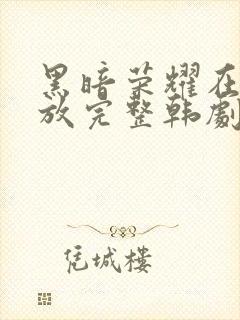 黑暗荣耀在
放完整韩劇
凭城樓